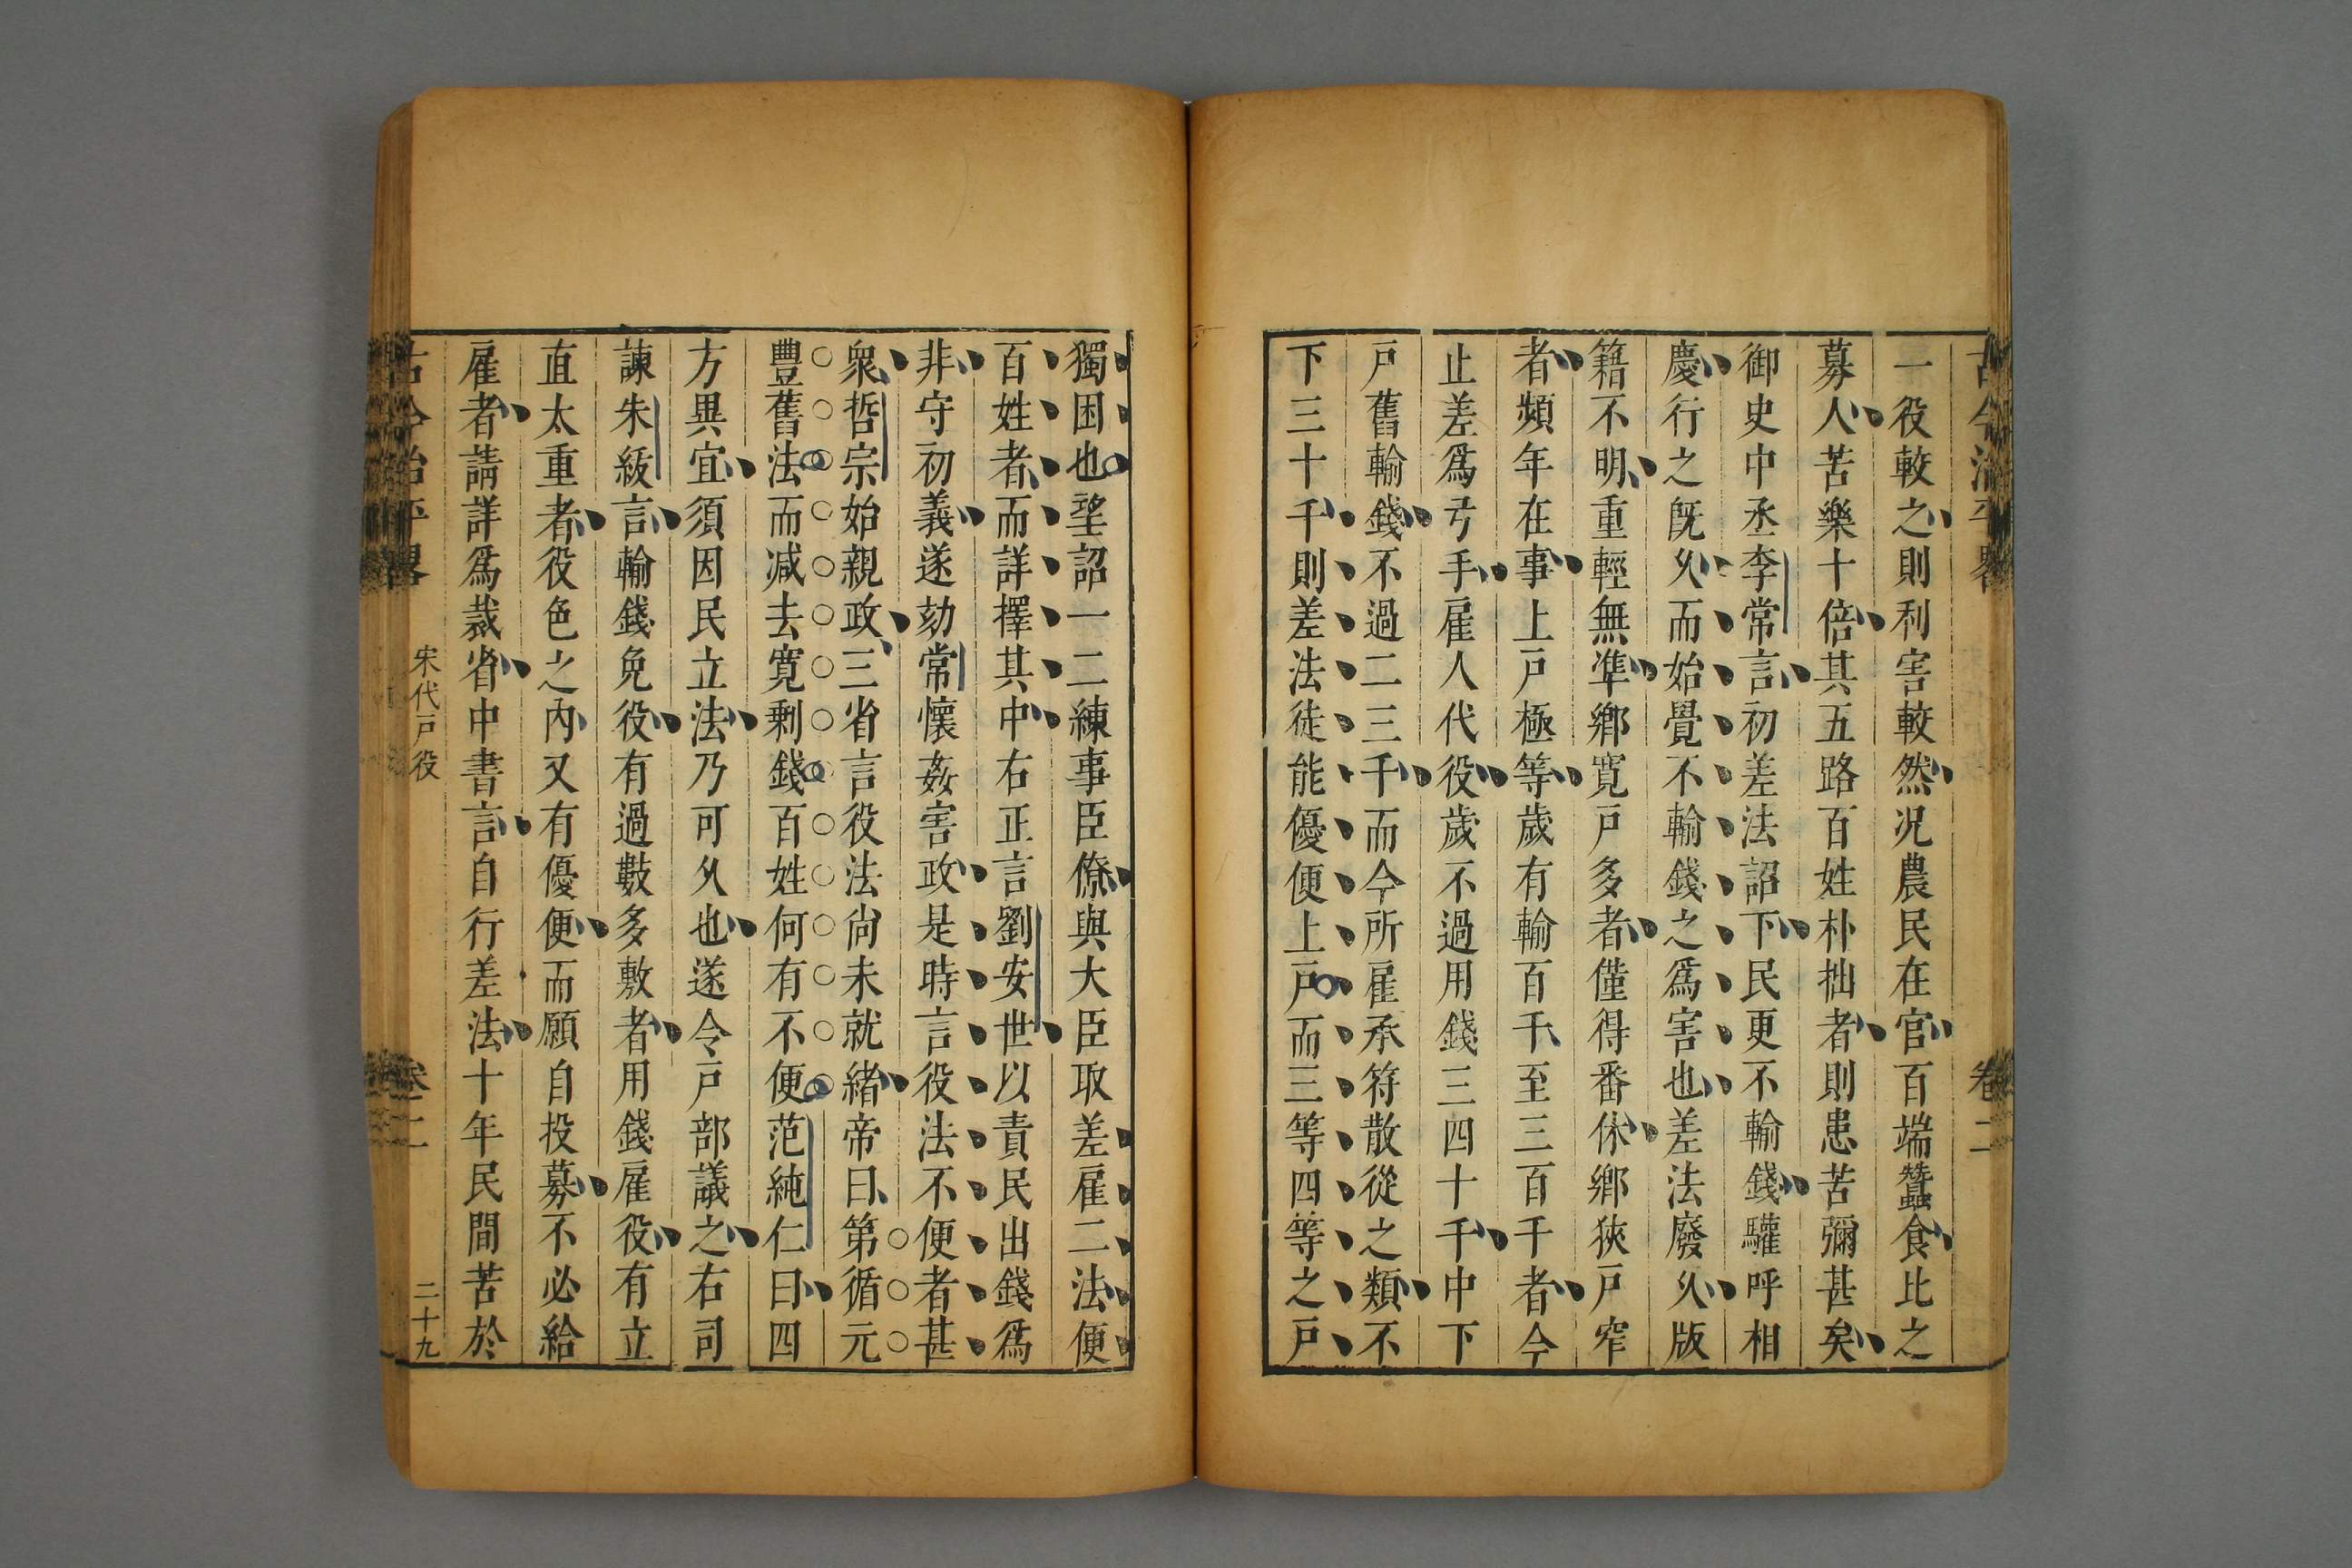 古今治平畧 卷二
一役較之則利害較然况農民在官百端蠶食比之
募人苦樂十倍其五路百姓朴拙者則患苦彌甚矣
御史中丞李常言初差法詔下民更不輸錢驩呼相
慶行之旣久而始覺不輸錢之爲害也差法廢久版
籍不明重輕無準鄉寛戸多者僅得番休鄉狹戸窄
者頻年在事上戸極等歲有輸百千至三百千者今
止差爲弓手雇人代役歲不過用錢三四十千中下
戸舊輸錢不過二三千而今所雇承符散從之類不
下三十千則差法徒能優便上戸而三等四等之戸
獨困也望詔一二練事臣僚與大臣取差雇二法便
百姓者而詳擇其中右正言劉安世以責民出錢爲
非守初義遂劾常懷姦害政是時言役法不便者甚
衆哲宗始親政三省言役法尚未就緒帝曰第循元
豐舊法而减去寛剩錢百姓何有不便范純仁曰四
方異宜須因民立法乃可久也遂令戸部議之右司
諫朱紱言輸錢免役有過數多敷者用錢雇役有立
直太重者役色之內又有優便而願自投募不必給
雇者請詳爲裁省中書言自行差法十年民間苦於
古今治平畧 宋代戸役 卷二 二十九